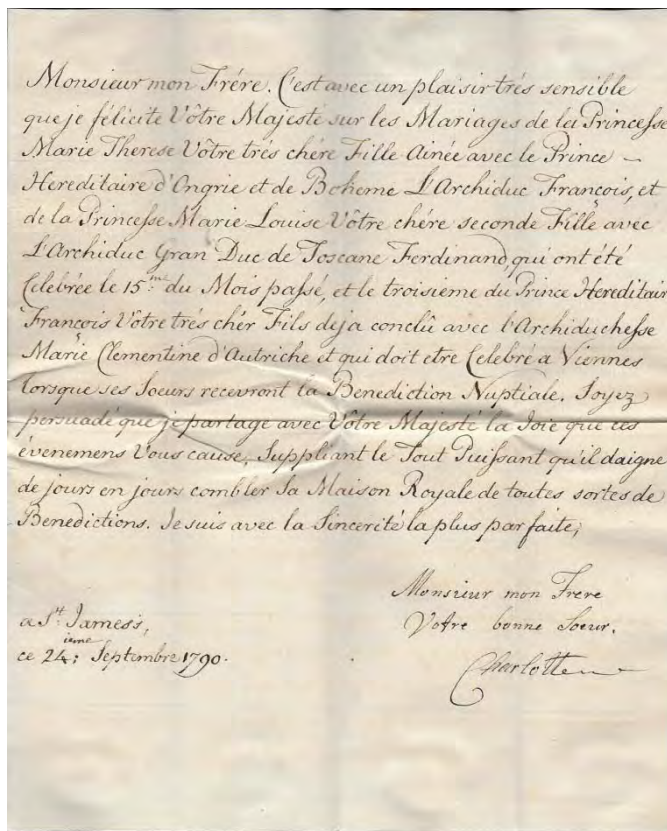 Monsieur mon Frére. C'est avec un plaisir trés sensible
que je félicite Vôtre Majesté sur les Mariages de la Princesse
Marie Therese Vôtre trés chére Fille Ainée avec le Prince –
Hereditaire d'Ongrie et de Boheme L'Archiduc François, et
de la Princesse Marie Louise Vôtre chére seconde Fille avec
L'Archiduc Gran Duc de Toscane Ferdinand, qui ont été
Celebrée le 15.me du Mois passé, et le troisieme du Prince Hereditair
François Vôtre trés chér Fils deja conclû avec l'Archiduchesse
Marie Clementine d'Autriche et qui doit etre Celebré a Viennes
lorsque ses Soeurs recevront la Benediction Nuptiale. Soyez
persuadé que je partage avec Vôtre Majesté la Joie que ces
évenemens Vous cause, Suppliant le Tout Puissant qu'il daigne
de jours en jours combler Sa Maison Royale de toutes sortes de
Benedictions. Je suis avec la Sincerité la plus parfaite,
Monsieur mon Frere
Votre bonne Soeur.
Charlotte
a St. James's,
ce 24: ieme Septembre 1790.